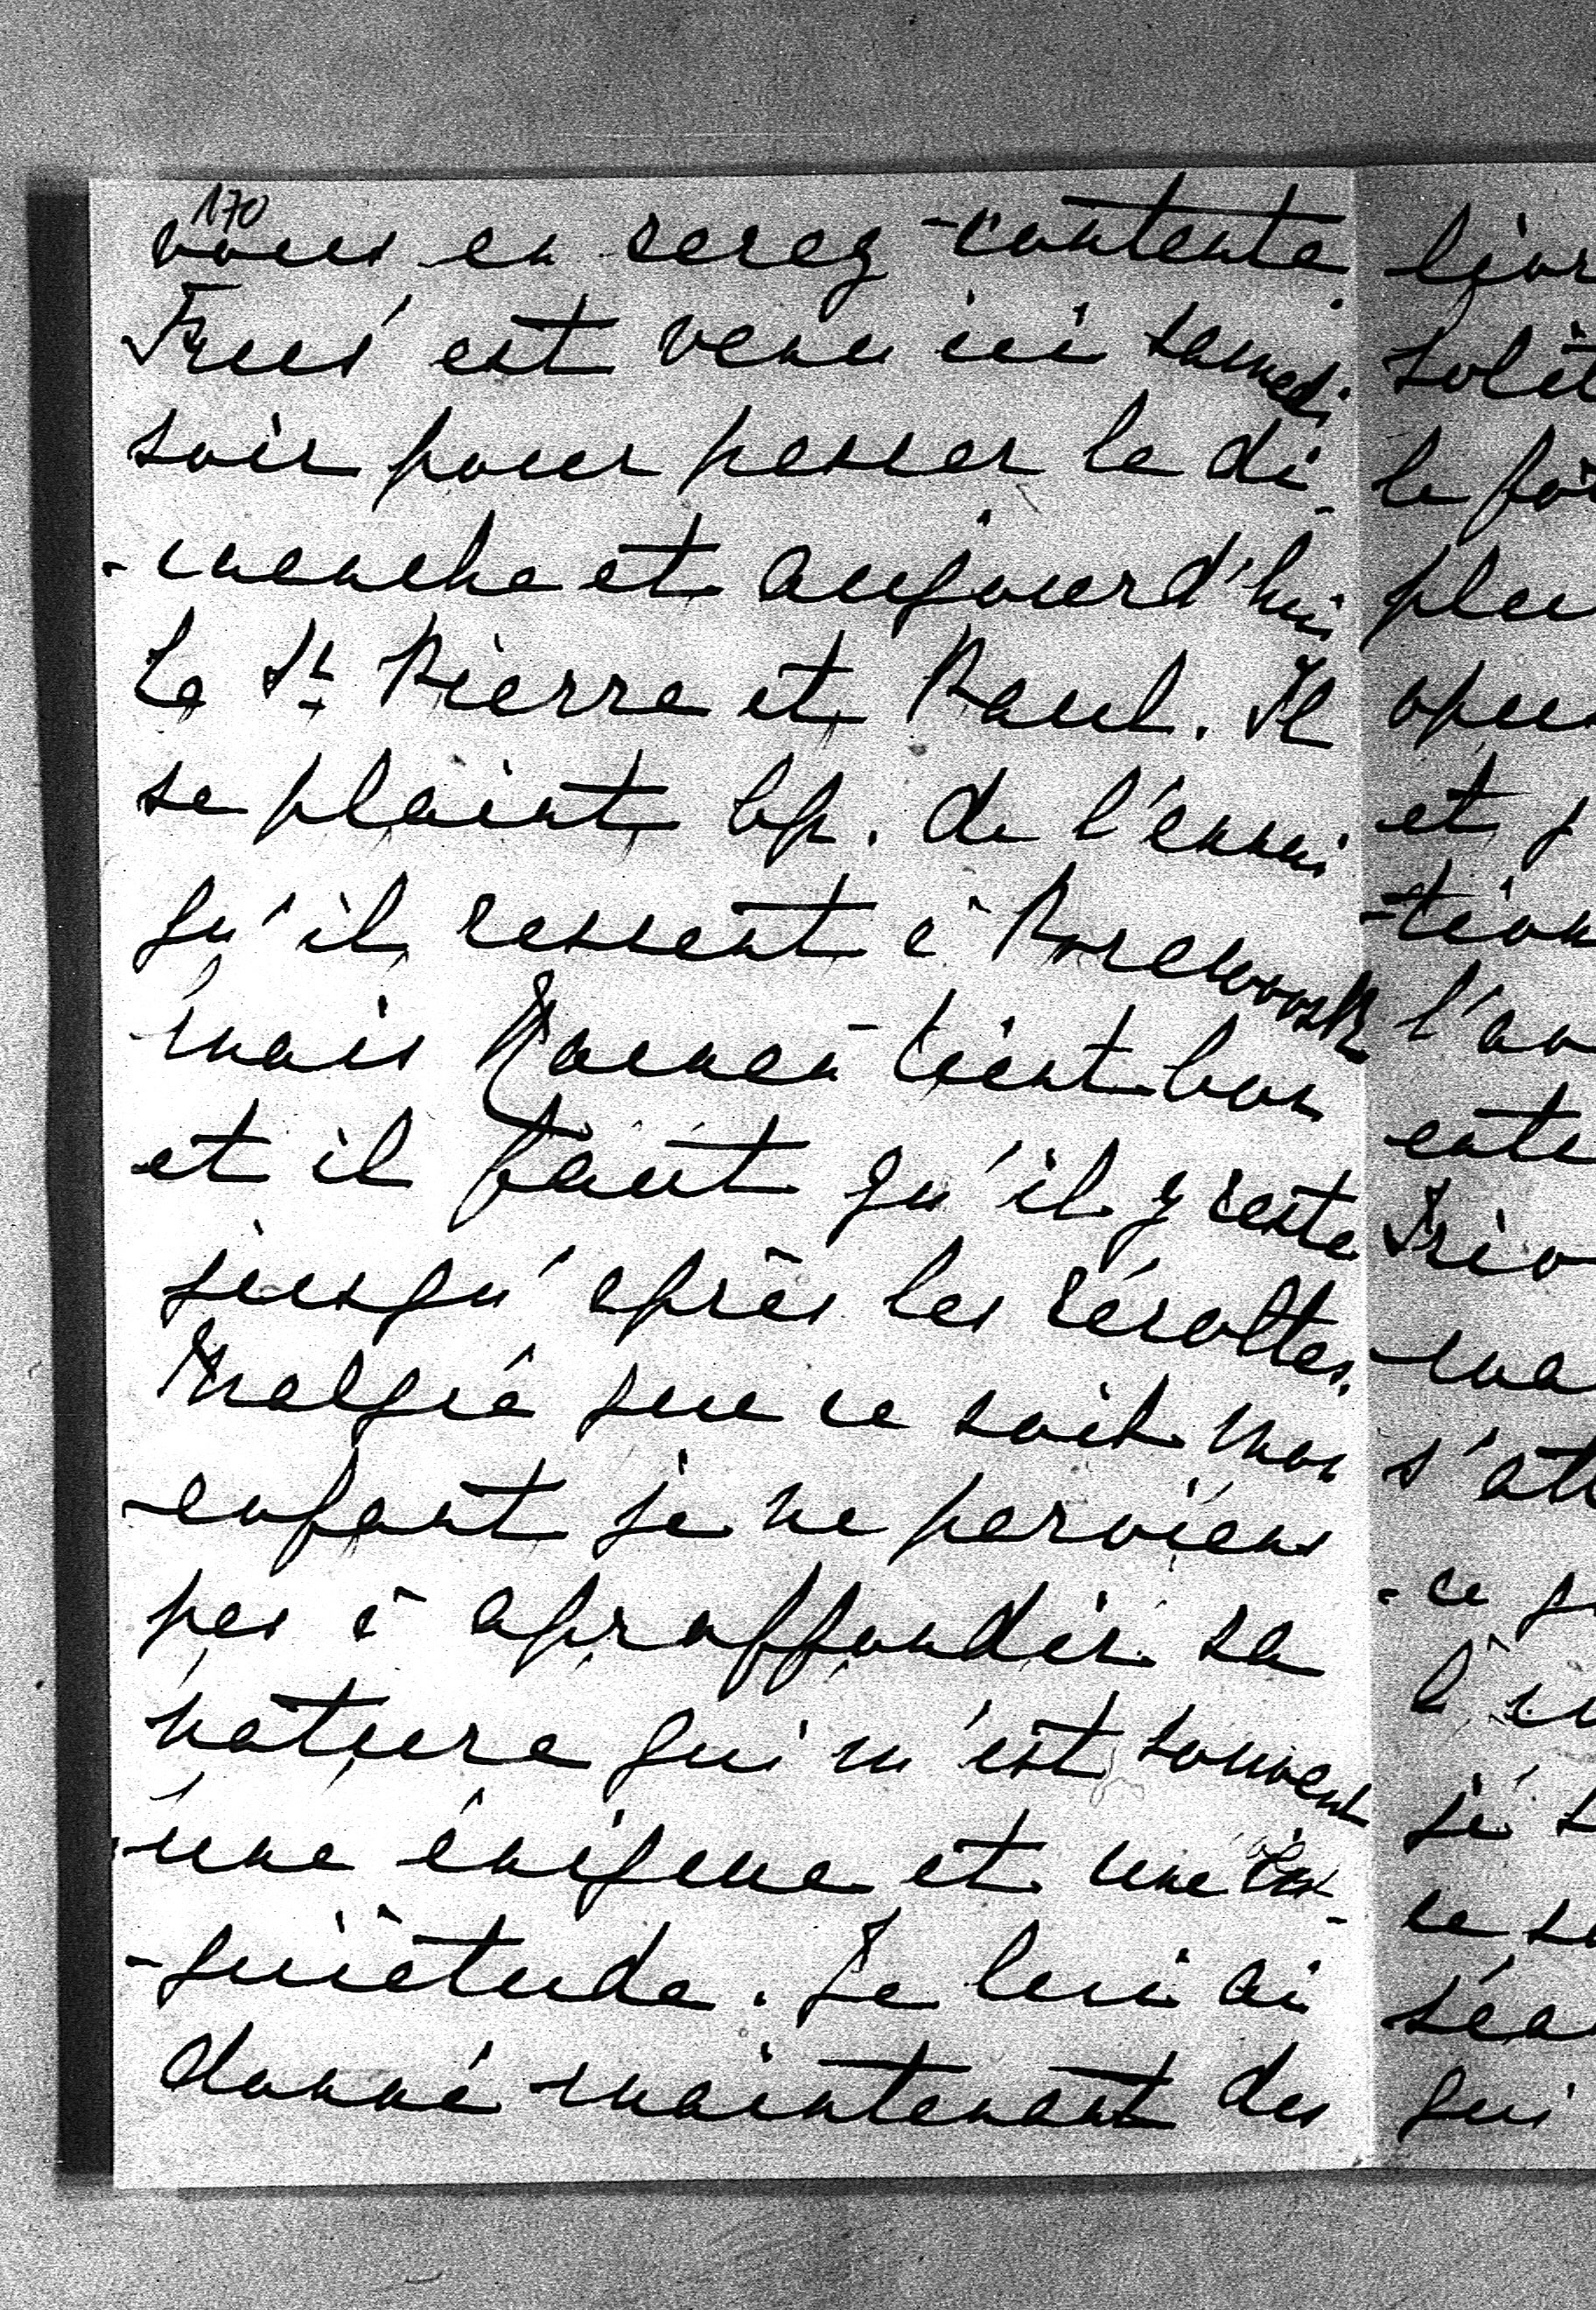 170
vous en serez contente.
est venu ici samedi
soir pour passer le di-
-manche et aujourd'hui
le St. Pierre et Paul. Il
se plaint bp. de l'ennui
qu'il ressent à
mais tient bon
et il faut qu'il y reste
jusqu'après les récoltes.
Malgré que ce soit mon
enfant je ne parviens
pas à aproffondir sa
nature qui m'est souvent
une énigme et une in-
-quiètude. Je lui ai
donné maintenant des
solit
plu
et
-tion
l'
s'att
-ce
ce
qui